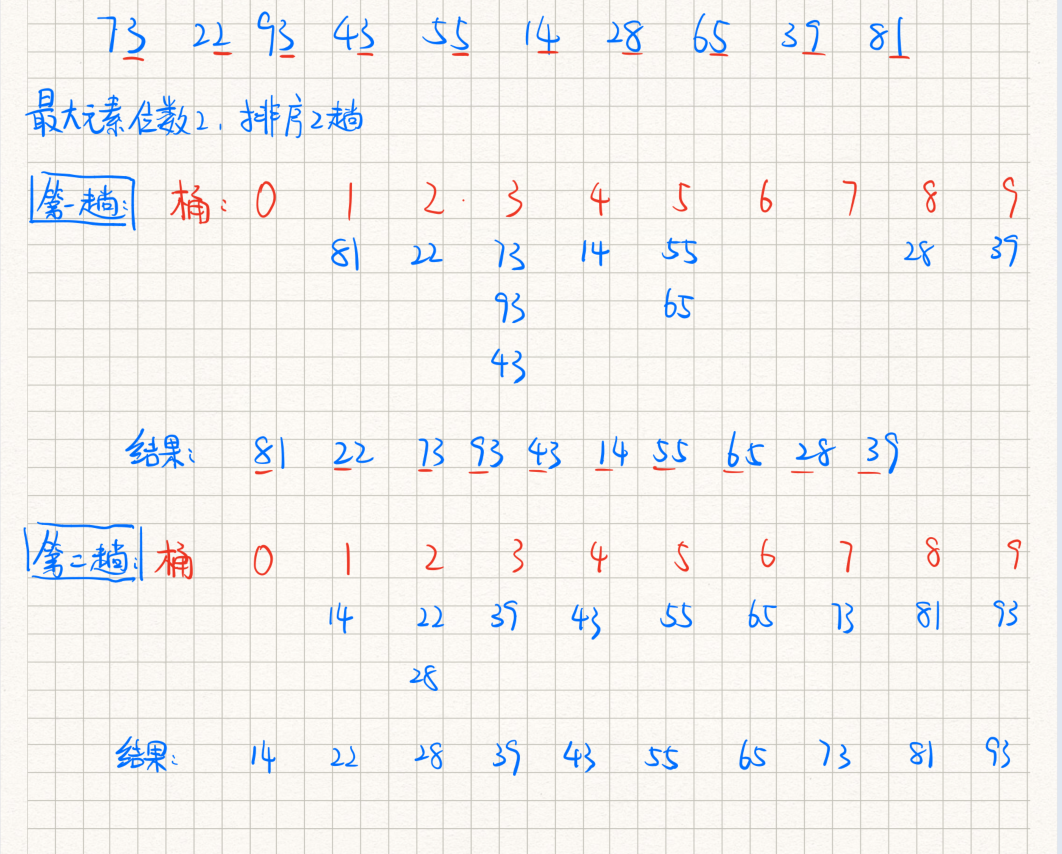 73 22 93 43 55 14 28 65 39 81
最大元素位数2，排序2趟
第一趟： 桶： 0 1 2 3 4 5 6 7 8 9
81 22 73 14 55 28 39
93 65
43
结果： 81 22 73 93 43 14 55 65 28 39
第二趟： 桶 0 1 2 3 4 5 6 7 8 9
14 22 39 43 55 65 73 81 93
28
结果： 14 22 28 39 43 55 65 73 81 93